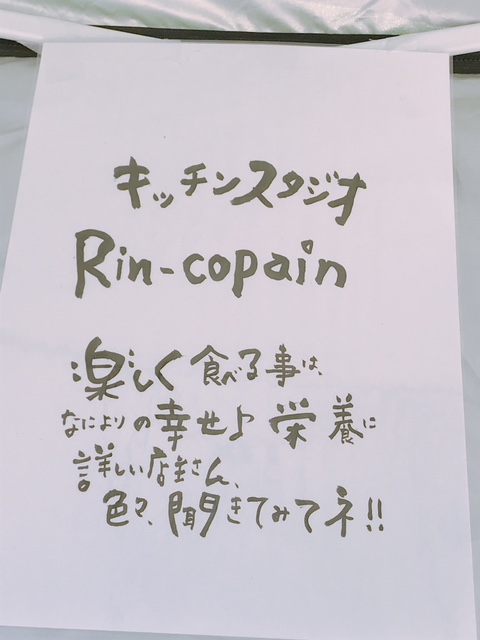 キッチンスタジオ
Rin-copain
楽しく食べる事は、
なによりの幸せ♪栄養に
詳しい店主さん、
色々、聞きてみてネ!!